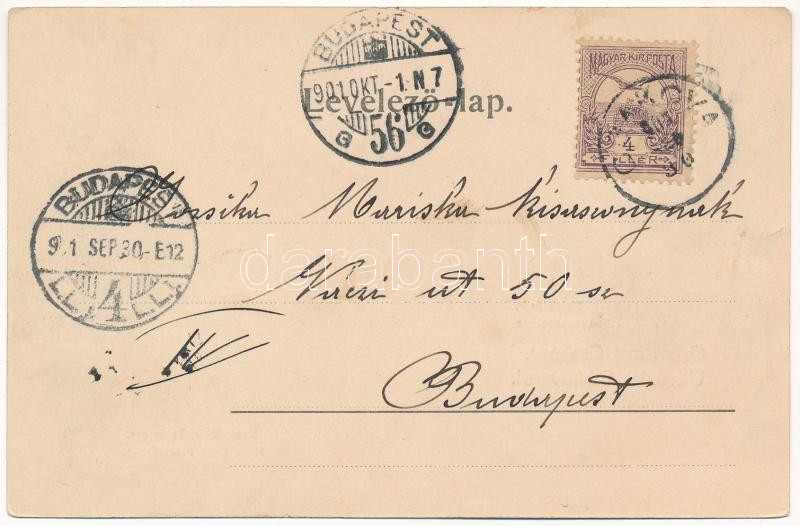 BUDAPEST
901 OKT.-1.N7
G 56 G
Levelező-lap.
MAGYAR KIR. POSTA
4
FILLÉR
CSAKOVA
BUDAPEST
9.1 SEP.30-E12
4
Mariska kisasszonynak
Váczi út 50 sz
IV
Budapest
darabanth